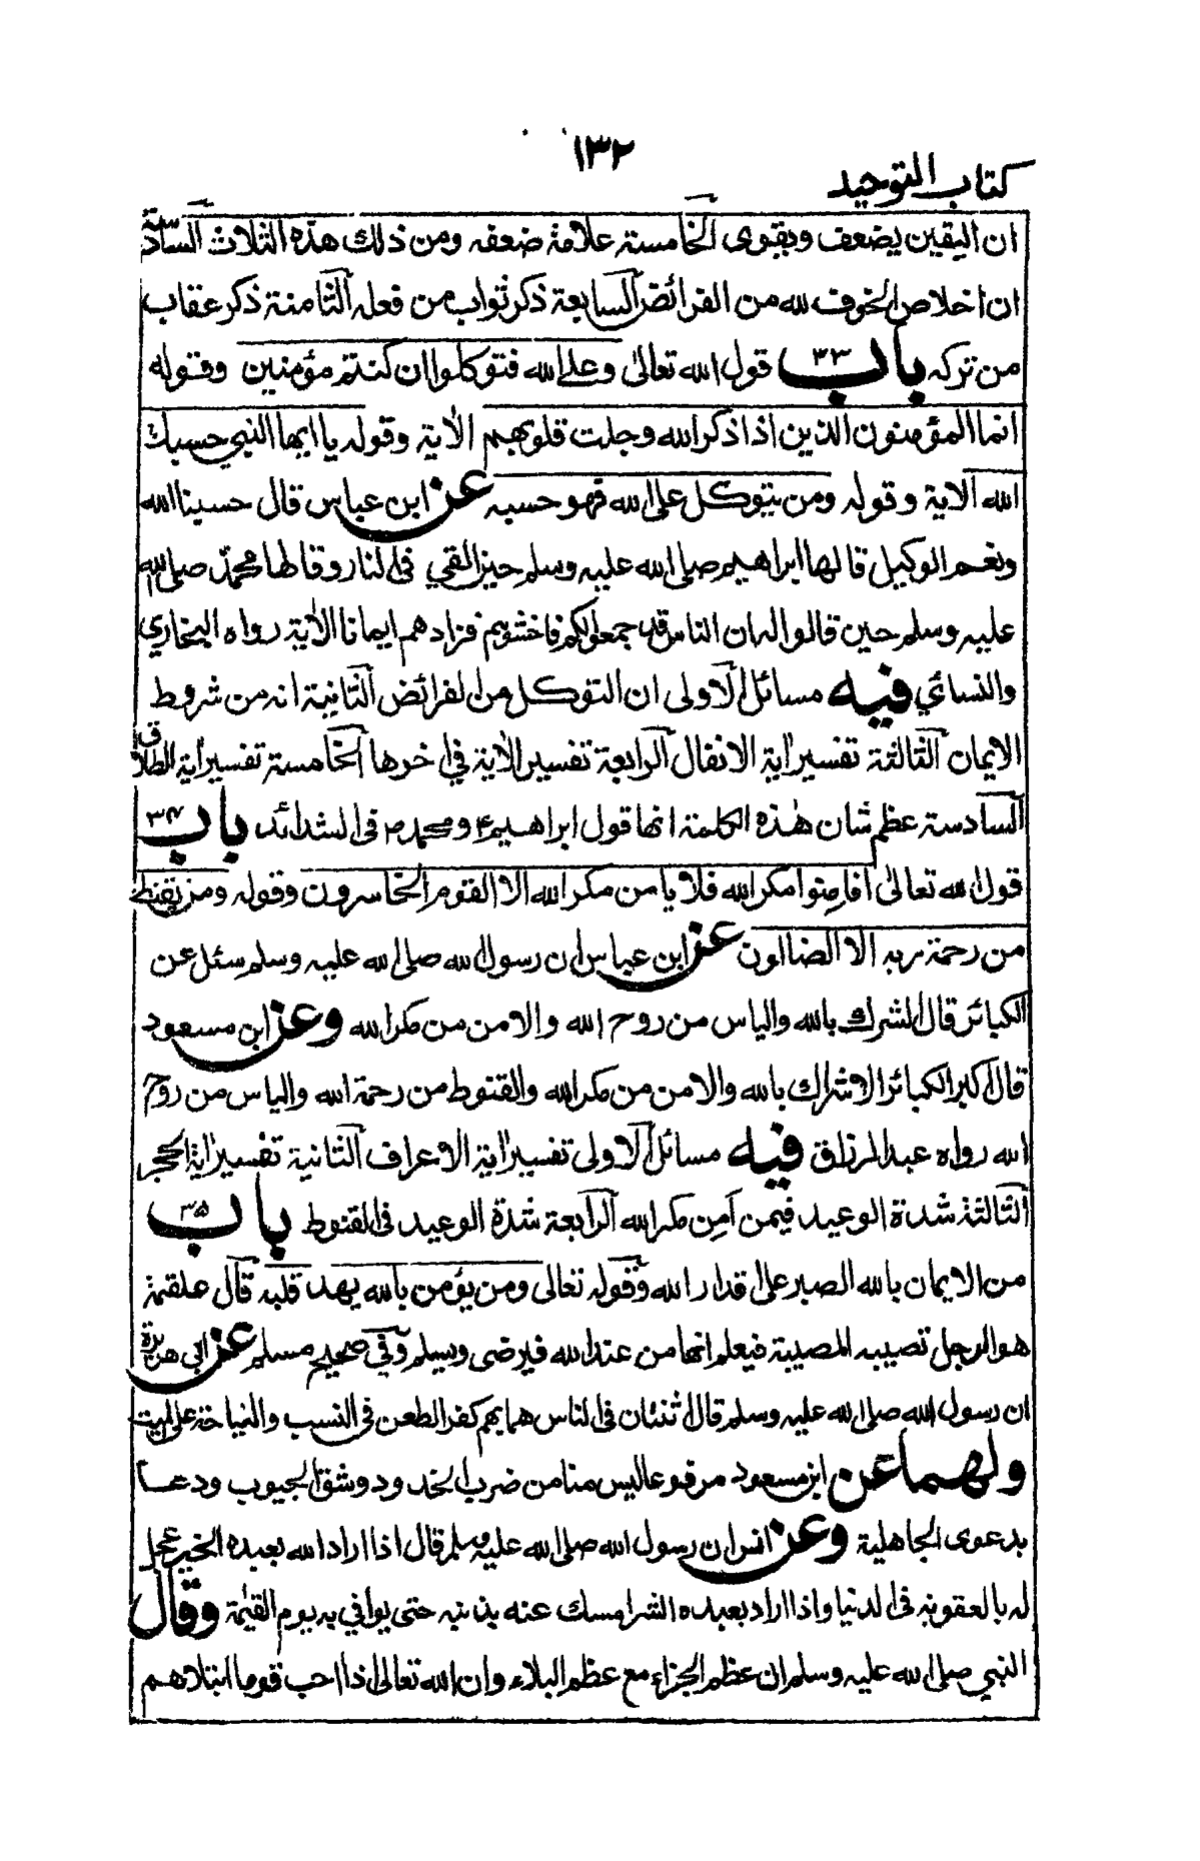 ١٣٢
كتاب التوحيد
ان اليقين يضعف ويقوى الخامسة علامة ضعفه ومن ذلك هذه الثلاث السادسة
ان اخلاص الخوف لله من الفرائض السابعة ذكر ثواب من فعله الثامنة ذكر عقاب
من تركه باب ٣٣ قول الله تعالى وعلى الله فتوكلوا ان كنتم مؤمنين وقوله
انما المؤمنون الذين اذا ذكر الله وجلت قلوبهم الاٰية وقوله يا ايها النبي حسبك
الله الاية وقوله ومن يتوكل على الله فهو حسبه عن ابن عباس قال حسبنا الله
ونعم الوكيل قالها ابراهيم صلى الله عليه وسلم حين القي في النار وقالها محمد صلى الله
عليه وسلم حين قالوا له ان الناس قد جمعوا لكم فاخشوهم فزادهم ايمانا الاٰية رواه البخاري
والنسائي فيه مسائل الاولى ان التوكل من الفرائض الثانية انه من شروط
الايمان الثالثة تفسير اٰية الانفال الرابعة تفسير الاٰية في اخرها الخامسة تفسير اٰية الطلاق
السادسة عظم شان هٰذه الكلمة انها قول ابراهيم ع ومحمد ص في الشدائد باب ٣٤
قول الله تعالى افامنوا مكر الله فلا يامن مكر الله الا القوم الخاسرون وقوله ومن يقنط
من رحمة ربه الا الضالون عن ابن عباس ان رسول الله صلى الله عليه وسلم سئل عن
الكبائر قال الشرك بالله والياس من روح الله والامن من مكر الله وعن ابن مسعود
قال اكبر الكبائر الاشراك بالله والامن من مكر الله والقنوط من رحمة الله والياس من روح
الله رواه عبد الرزاق فيه مسائل الاولى تفسير اٰية الاعراف الثانية تفسير اٰية الحجر
الثالثة شدة الوعيد فيمن آمِن مكر الله الرابعة شدة الوعيد في القنوط باب ٣٥
من الايمان بالله الصبر على اقدار الله وقوله تعالى ومن يؤمن بالله يهد قلبه قال علقمة
هو الرجل تصيبه المصيبة فيعلم انها من عند الله فيرضى ويسلم وفي صحيح مسلم عن ابي هريرة
ان رسول الله صلى الله عليه وسلم قال اثنتان في الناس هما بهم كفر الطعن في النسب والنياحة على الميت
ولهما عن ابن مسعود مرفوعا ليس منا من ضرب الخدود وشق الجيوب ودعا
بدعوى الجاهلية وعن انس ان رسول الله صلى الله عليه وسلم قال اذا اراد الله بعبده الخير عجل
له بالعقوبة في الدنيا واذا اراد بعبده الشر امسك عنه بذنبه حتى يوافي به يوم القيٰمة وقال
النبي صلى الله عليه وسلم ان عظم الجزاء مع عظم البلاء وان الله تعالى اذا احب قوما ابتلاهم